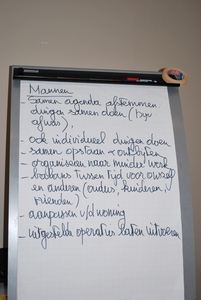 Mannen
- Samen agenda afstemmen
dingen samen doen (bijv
afwas),
- ook individueel dingen doen
- samen opstaan + ontbijten
- organiseren naar minder werk
- balans tussen tijd voor onszelf
en anderen (ouders, kinderen,
vrienden)
- aanpassen v/d woning
- uitgestelde operatie laten uitvoeren